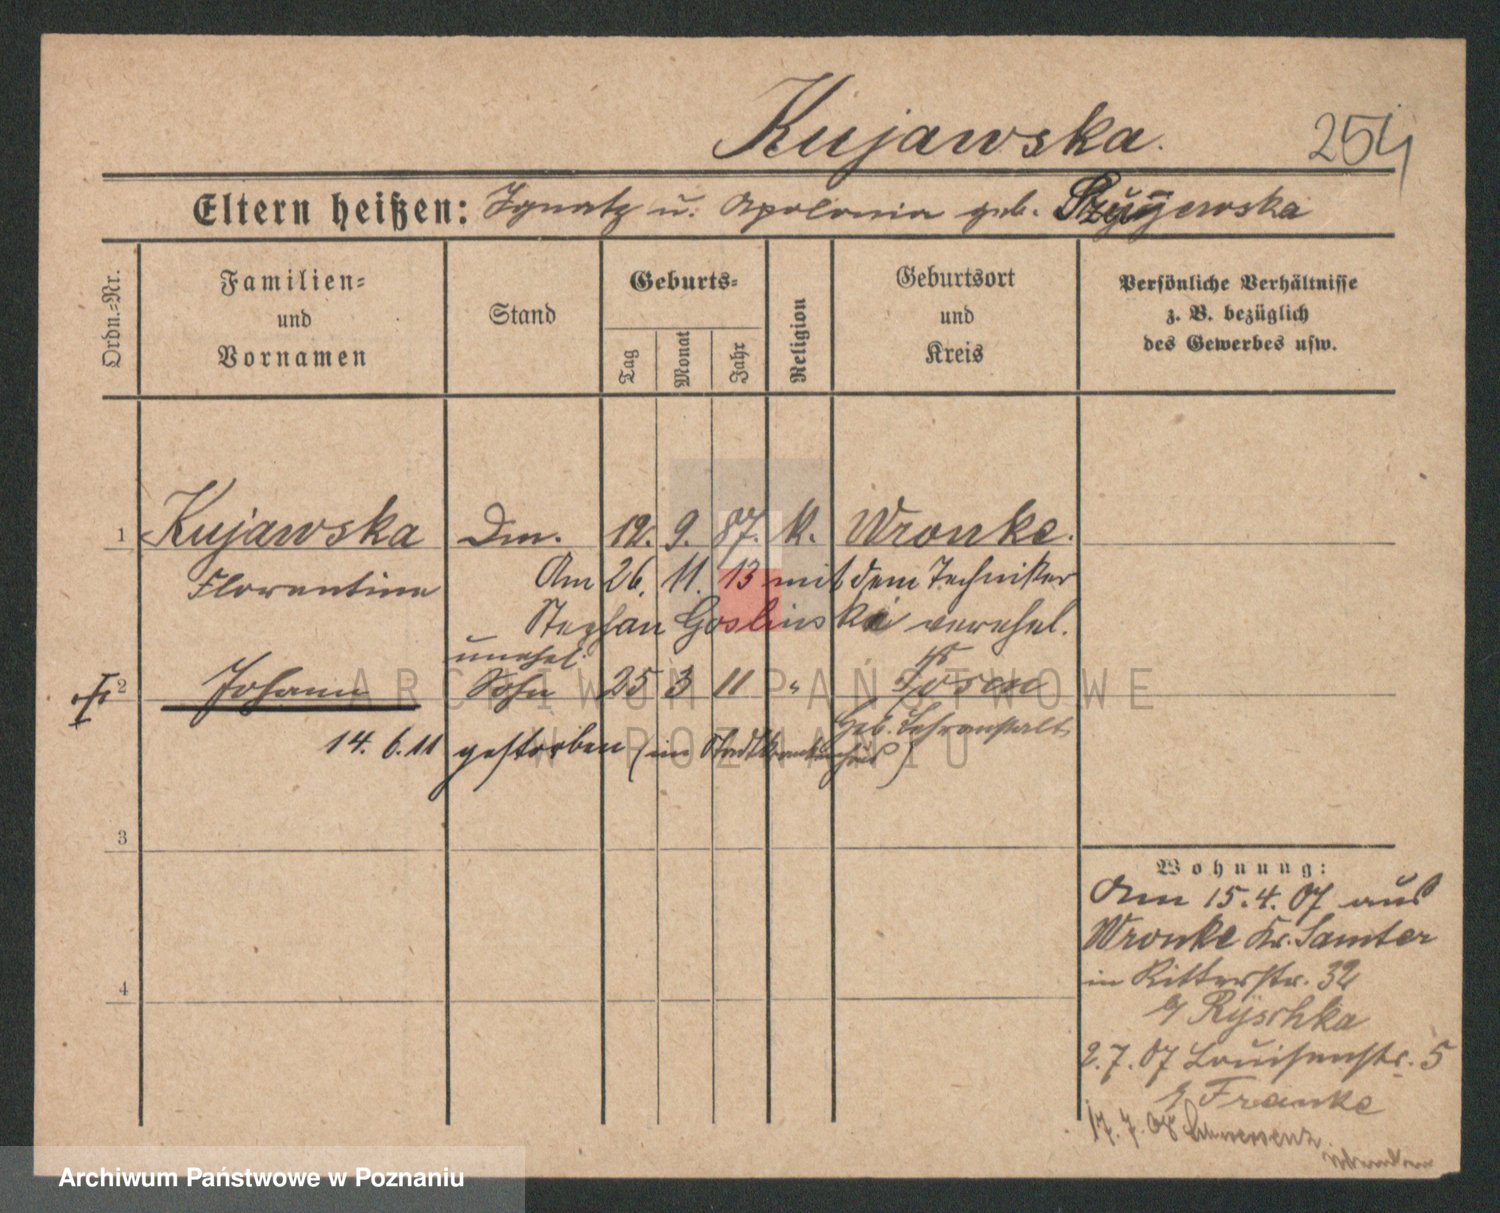 Kujawska.
254
Eltern heißen: Ignatz u. Apolonia geb.
Ordn.=Nr.
Familien=
und
Vornamen
Stand
Geburts=
Tag
Monat
Jahr
Religion
Geburtsort
und
Kreis
Persönliche Verhältnisse
z. B. bezüglich
des Gewerbes usw.
1 Kujawska Dm. 12. 9. 87. k. Wronke.
Florentine Am 26. 11. 13 mit dem Techniker
Stephan Goslinski verehel.
unehel.
2 Johann Sohn 25 3 11 " Posen
Geb. Lehranstalt
14. 6. 11 gestorben (im Stadtkrankenhaus)
3
4
Wohnung:
Am 15. 4. 07 aus
Wronke Kr. Samter
in Ritterstr. 32
b/ Ryschka
2. 7. 07 Louisenstr. 5
b/ Franke
17. 7. 08
ARCHIWUM PAŃSTWOWE
W POZNANIU
Archiwum Państwowe w Poznaniu